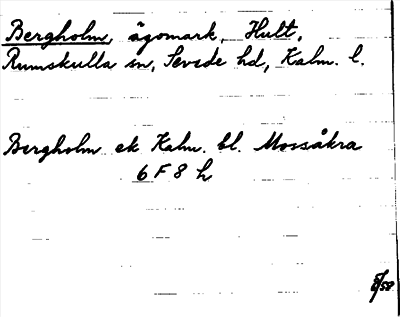 Bergholm, ägomark, Hult,
Rumskulla sn, Sevede hd, Kalm. l.
Bergholm ek Kalm. bl. Mossåkra
6 F 8 h